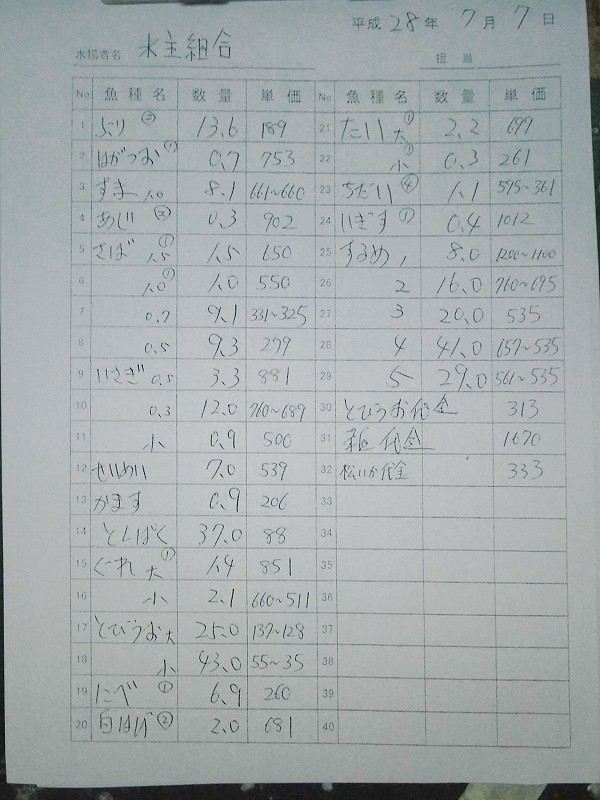 平成 28 年 7 月 7 日
水揚者名 水主組合 担当
No 魚種名 数量 単価 No 魚種名 数量 単価
1 ぶり ② 13.6 189 21 たい 大 ① 2.2 697
2 はがつお ① 0.7 753 22 小 ① 0.3 261
3 すま 1.0 8.1 661~660 23 ちだい ④ 1.1 595~361
4 あじ ② 0.3 902 24 いぎす ① 0.4 1012
5 さば 1.5 ① 1.5 650 25 するめ 1 8.0 1200~1100
6 1.0 ① 1.0 550 26 2 16.0 760~695
7 0.7 9.1 331~325 27 3 20.0 535
8 0.5 9.3 279 28 4 41.0 157~535
9 いさぎ 0.5 3.3 881 29 5 29.0 561~535
10 0.3 12.0 760~689 30 とびうお代金 313
11 小 0.9 500 31 代金 1670
12 せいめい 7.0 539 32 松いか代金 333
13 かます 0.9 206 33
14 とんぱく 37.0 88 34
15 ぐれ 大 ① 1.4 851 35
16 小 2.1 660~511 36
17 とびうお 大 25.0 137~128 37
18 小 43.0 55~35 38
19 にべ ① 6.9 260 39
20 白はげ ② 2.0 681 40